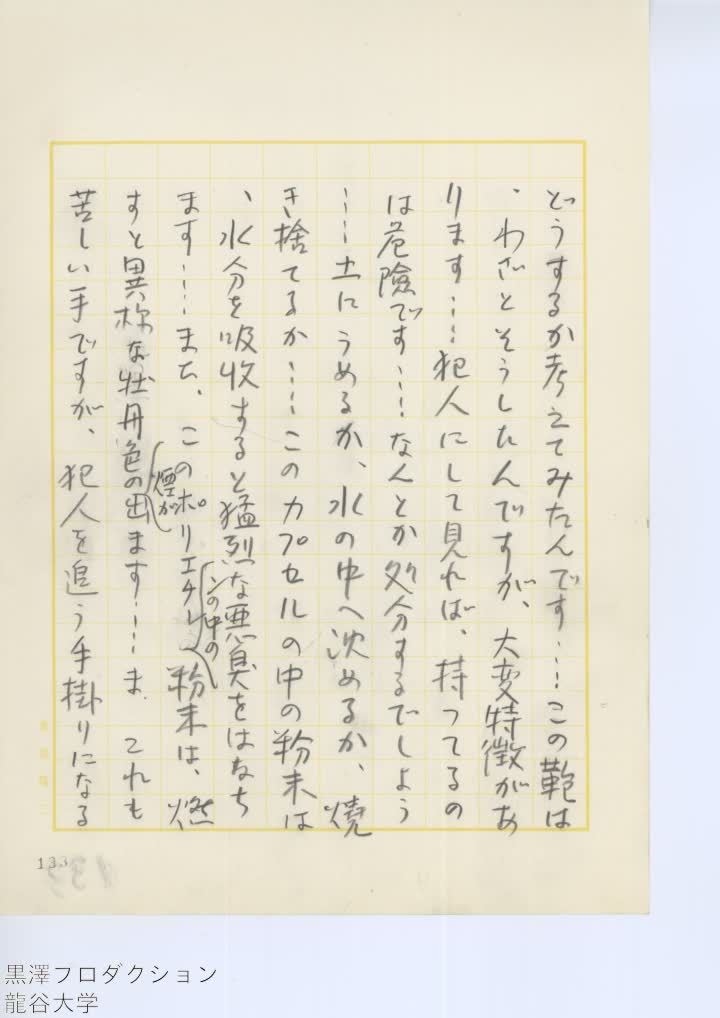 どうするか考えてみたんです……この鞄は
、わざとそうしたんですが、大変特徴があ
ります……犯人にして見れば、持つてるの
は危険です……なんとか処分するでしよう
……土にうめるか、水の中へ沈めるか、焼
き捨てるか……このカプセルの中の粉末は
、水分を吸収すると猛烈な悪臭をはなち
ます……また、このポリエチレンの中の粉末は、燃
すと異様な牡丹色の煙が出ます……ま、これも
苦しい手ですが、犯人を追う手掛りになる
133
黒澤フロダクション
龍谷大学